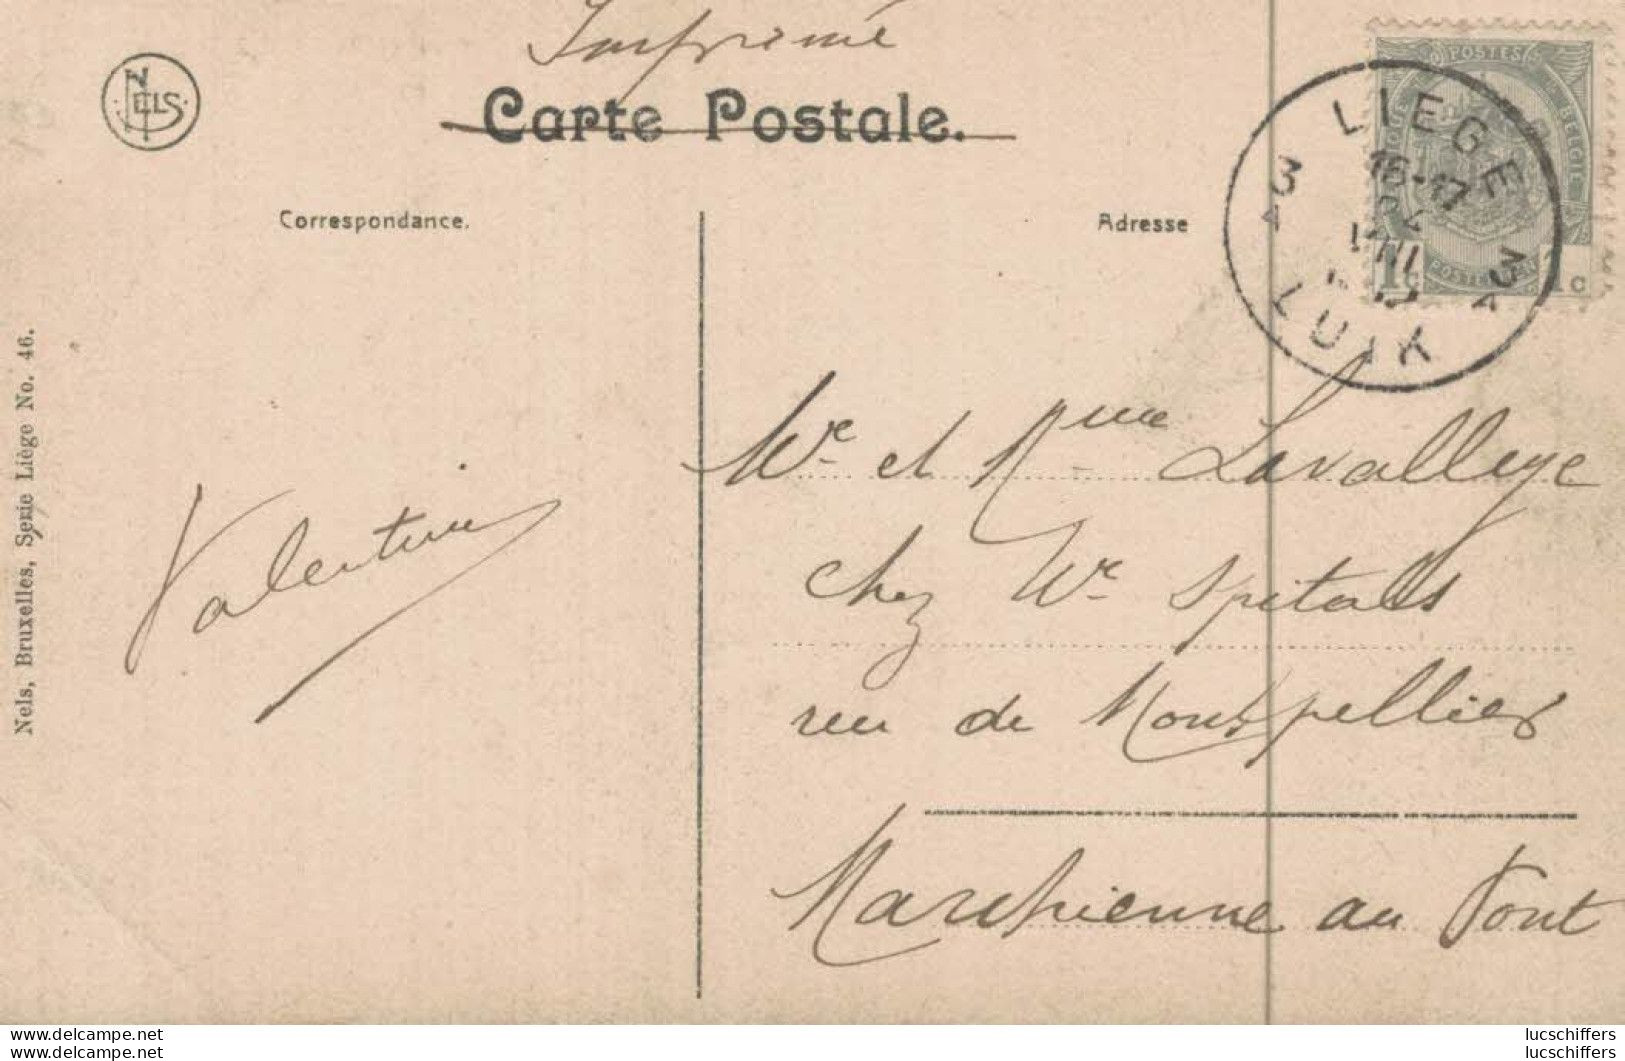 Imprimé
NELS
Carte Postale.
Correspondance.
Adresse
POSTES
BELGIE
1c
1c
LIEGE
16-17
VIII
3A
3A
LUIK
Mr et Mme Lavalleye
chez Mr Spitaels
rue de Montpellier
Marchienne au Pont
Valentine
Nels, Bruxelles, Serie Liège No. 46.
www.delcampe.net
www.delcampe.net
lucschiffers
lucschiffers